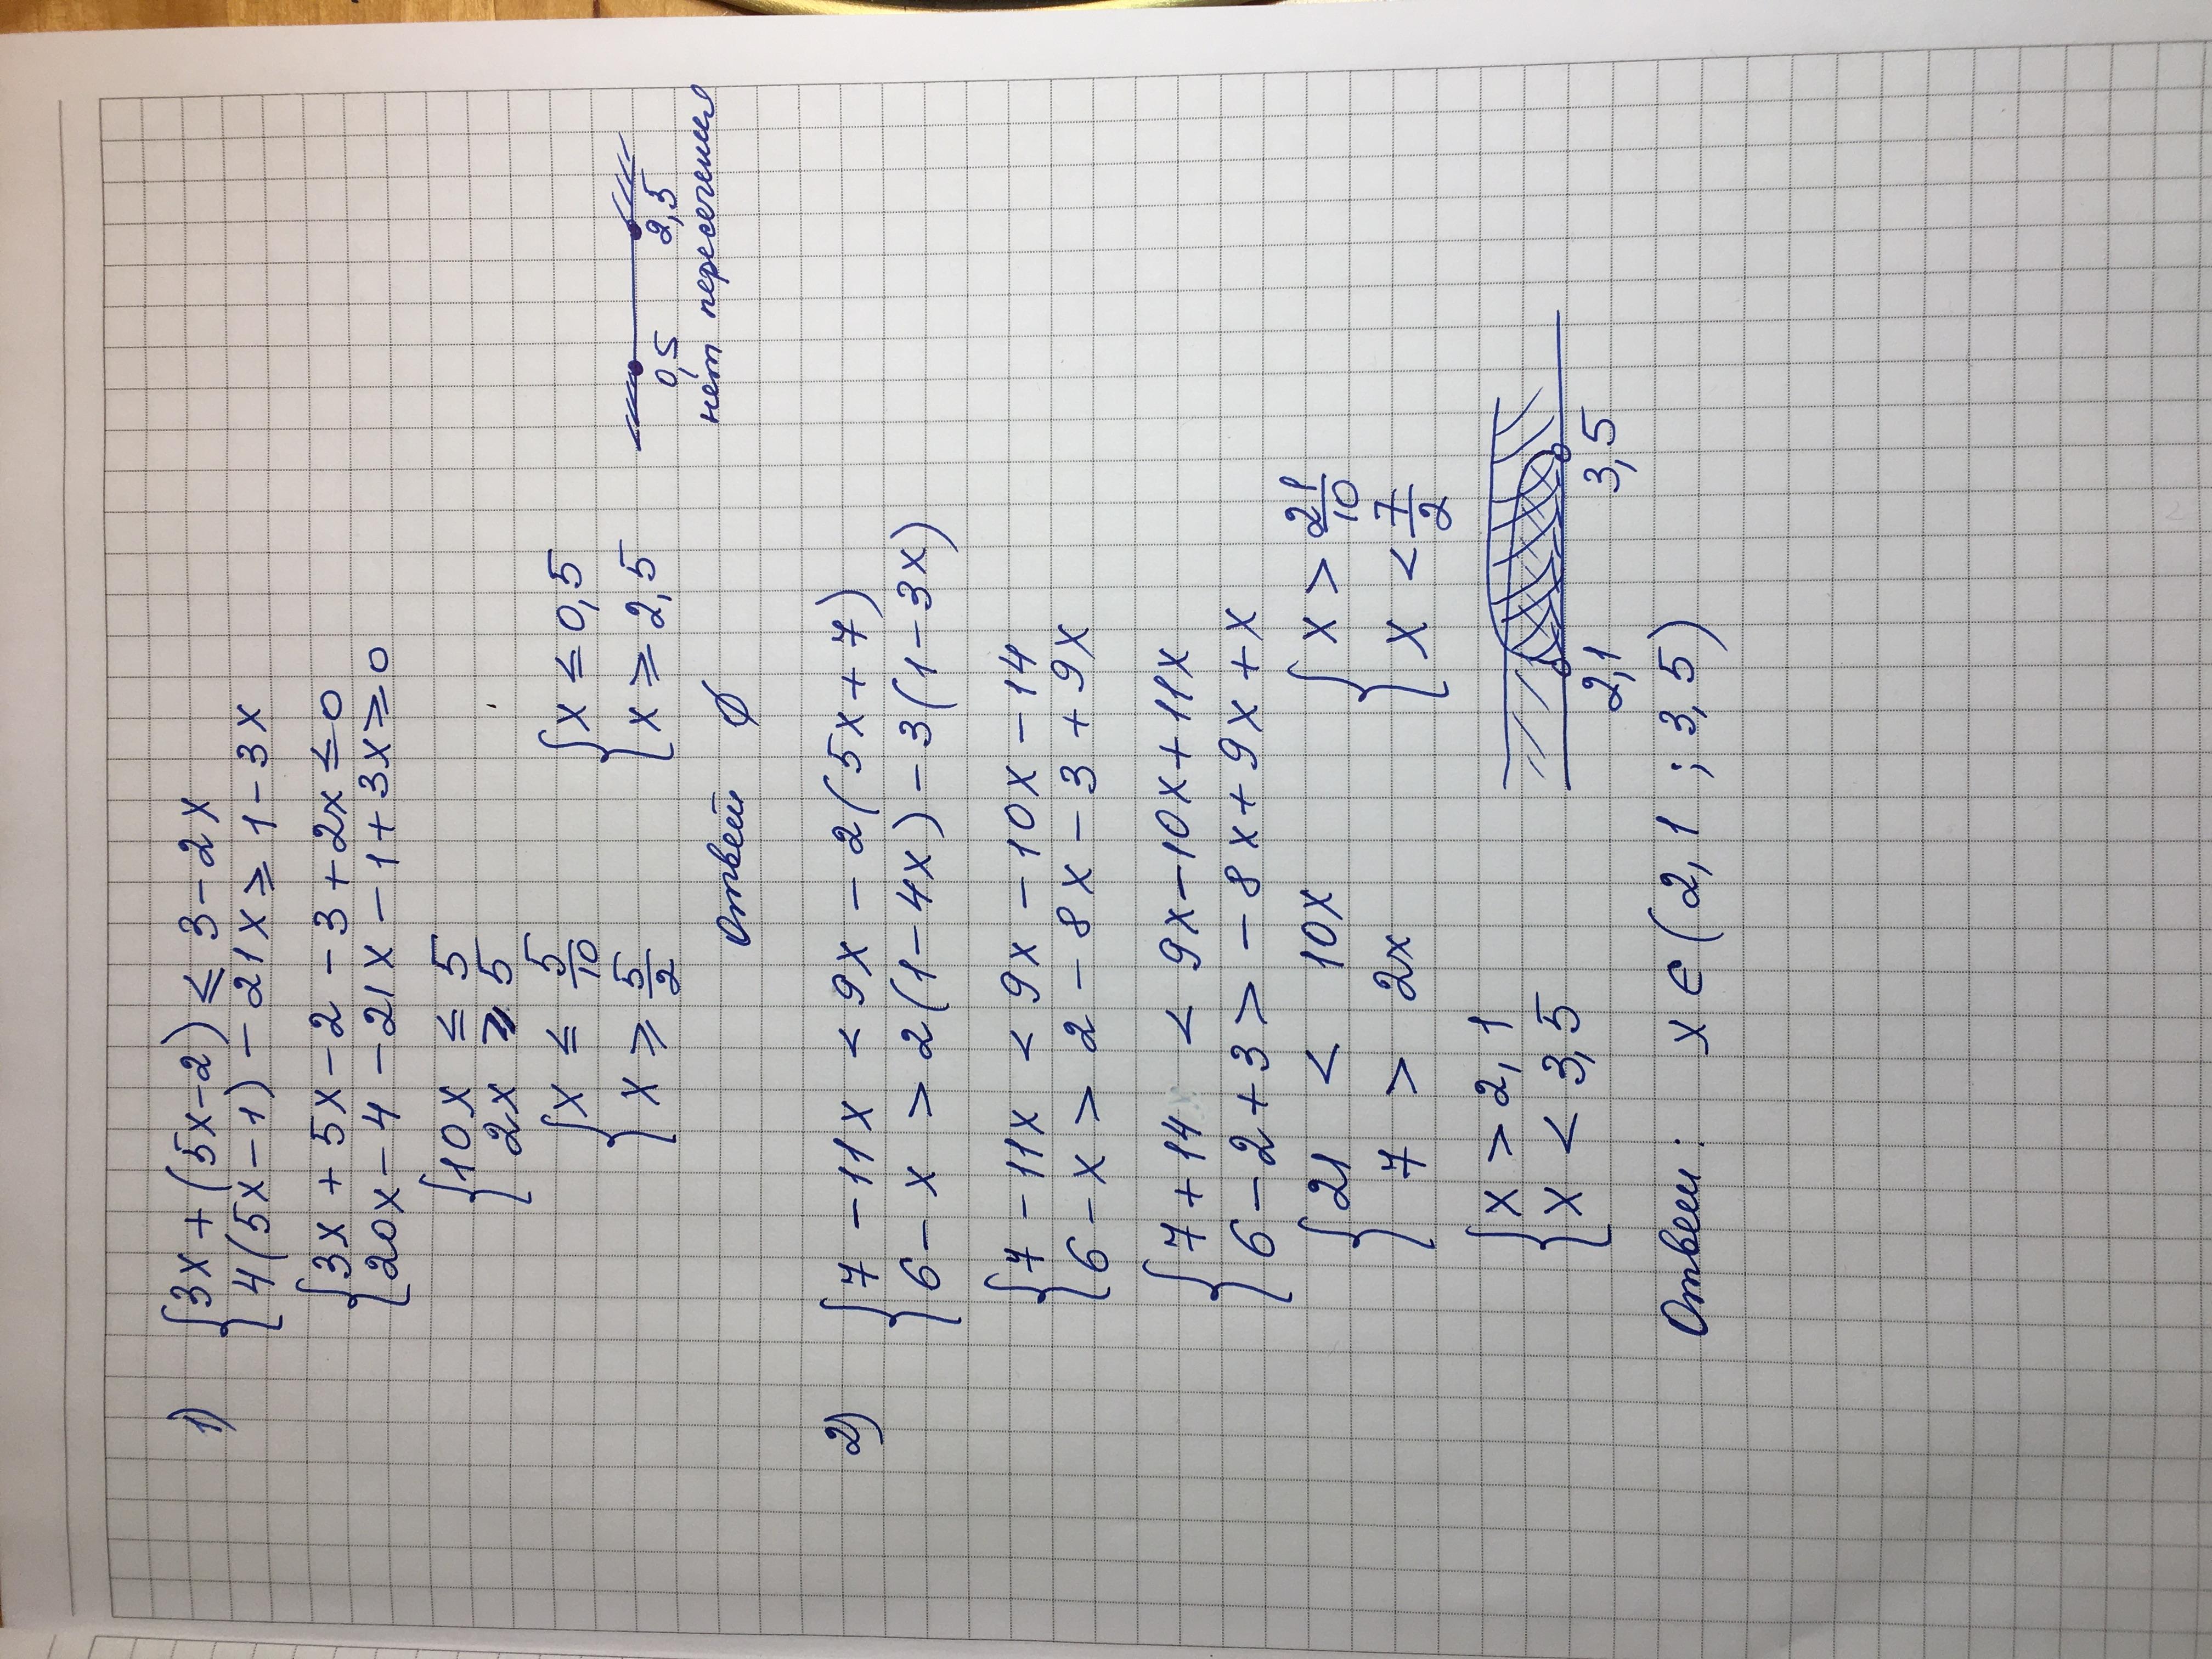 1) {3x+(5x-2) ≤ 3-2x
4(5x-1) - 21x ≥ 1-3x
{3x+5x-2-3+2x ≤ 0
20x-4-21x-1+3x ≥ 0
{10x ≤ 5
2x ≥ 5
{x ≤ 5/10 {x ≤ 0,5
x ≥ 5/2 x ≥ 2,5
0,5 2,5
нет пересечения
Ответ ∅
2) {7-11x < 9x-2(5x+7)
6-x > 2(1-4x)-3(1-3x)
{7-11x < 9x-10x-14
6-x > 2-8x-3+9x
{7+14 < 9x-10x+11x
6-2+3 > -8x+9x+x
{21 < 10x {x > 21/10
7 > 2x x < 7/2
{x > 2,1
x < 3,5
2,1 3,5
Ответ: x ∈ (2,1 ; 3,5)